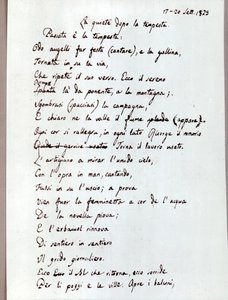 17-20 Sett. 1829
La quiete dopo la tempesta.
Passata è la tempesta:
Odo augelli far festa (cantare), e la gallina,
Tornata in su la via,
Che ripete il suo verso. Ecco il sereno
Rompe là da ponente, a la montagna;
Sgombrasi (spacciasi) la campagna,
E chiaro ne la valle il fiume (appare).
Ogni cor si rallegra, in ogni lato
Risorge il romorio
Torna il lavoro usato.
L'artigiano a mirar l'umido cielo,
Con l'opra in man, cantando,
Fassi in su l'uscio; a prova
Vien fuor la femminetta a cor de l'acqua
De la novella piova;
E l'erbaiuol rinnova
Di sentiero in sentiero
Il grido giornaliero.
Ecco il Sol che ritorna, ecco sorride
Per li poggi e le ville. Apre i balconi,